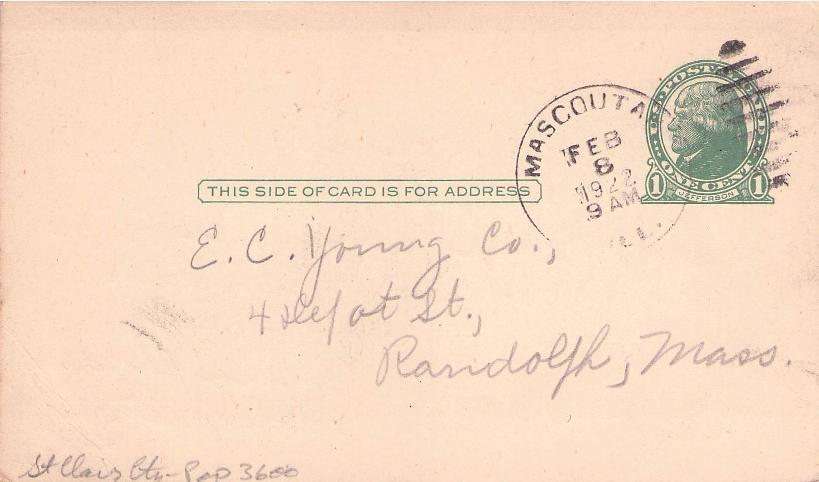 MASCOUTA
FEB
8
1922
9 AM
ILL.
U.S. POSTAL CARD
ONE CENT
1 JEFFERSON 1
THIS SIDE OF CARD IS FOR ADDRESS
E. C. Young Co.,
4 Depot St.,
Randolph, Mass.
St Clair Cty - Pop 3600